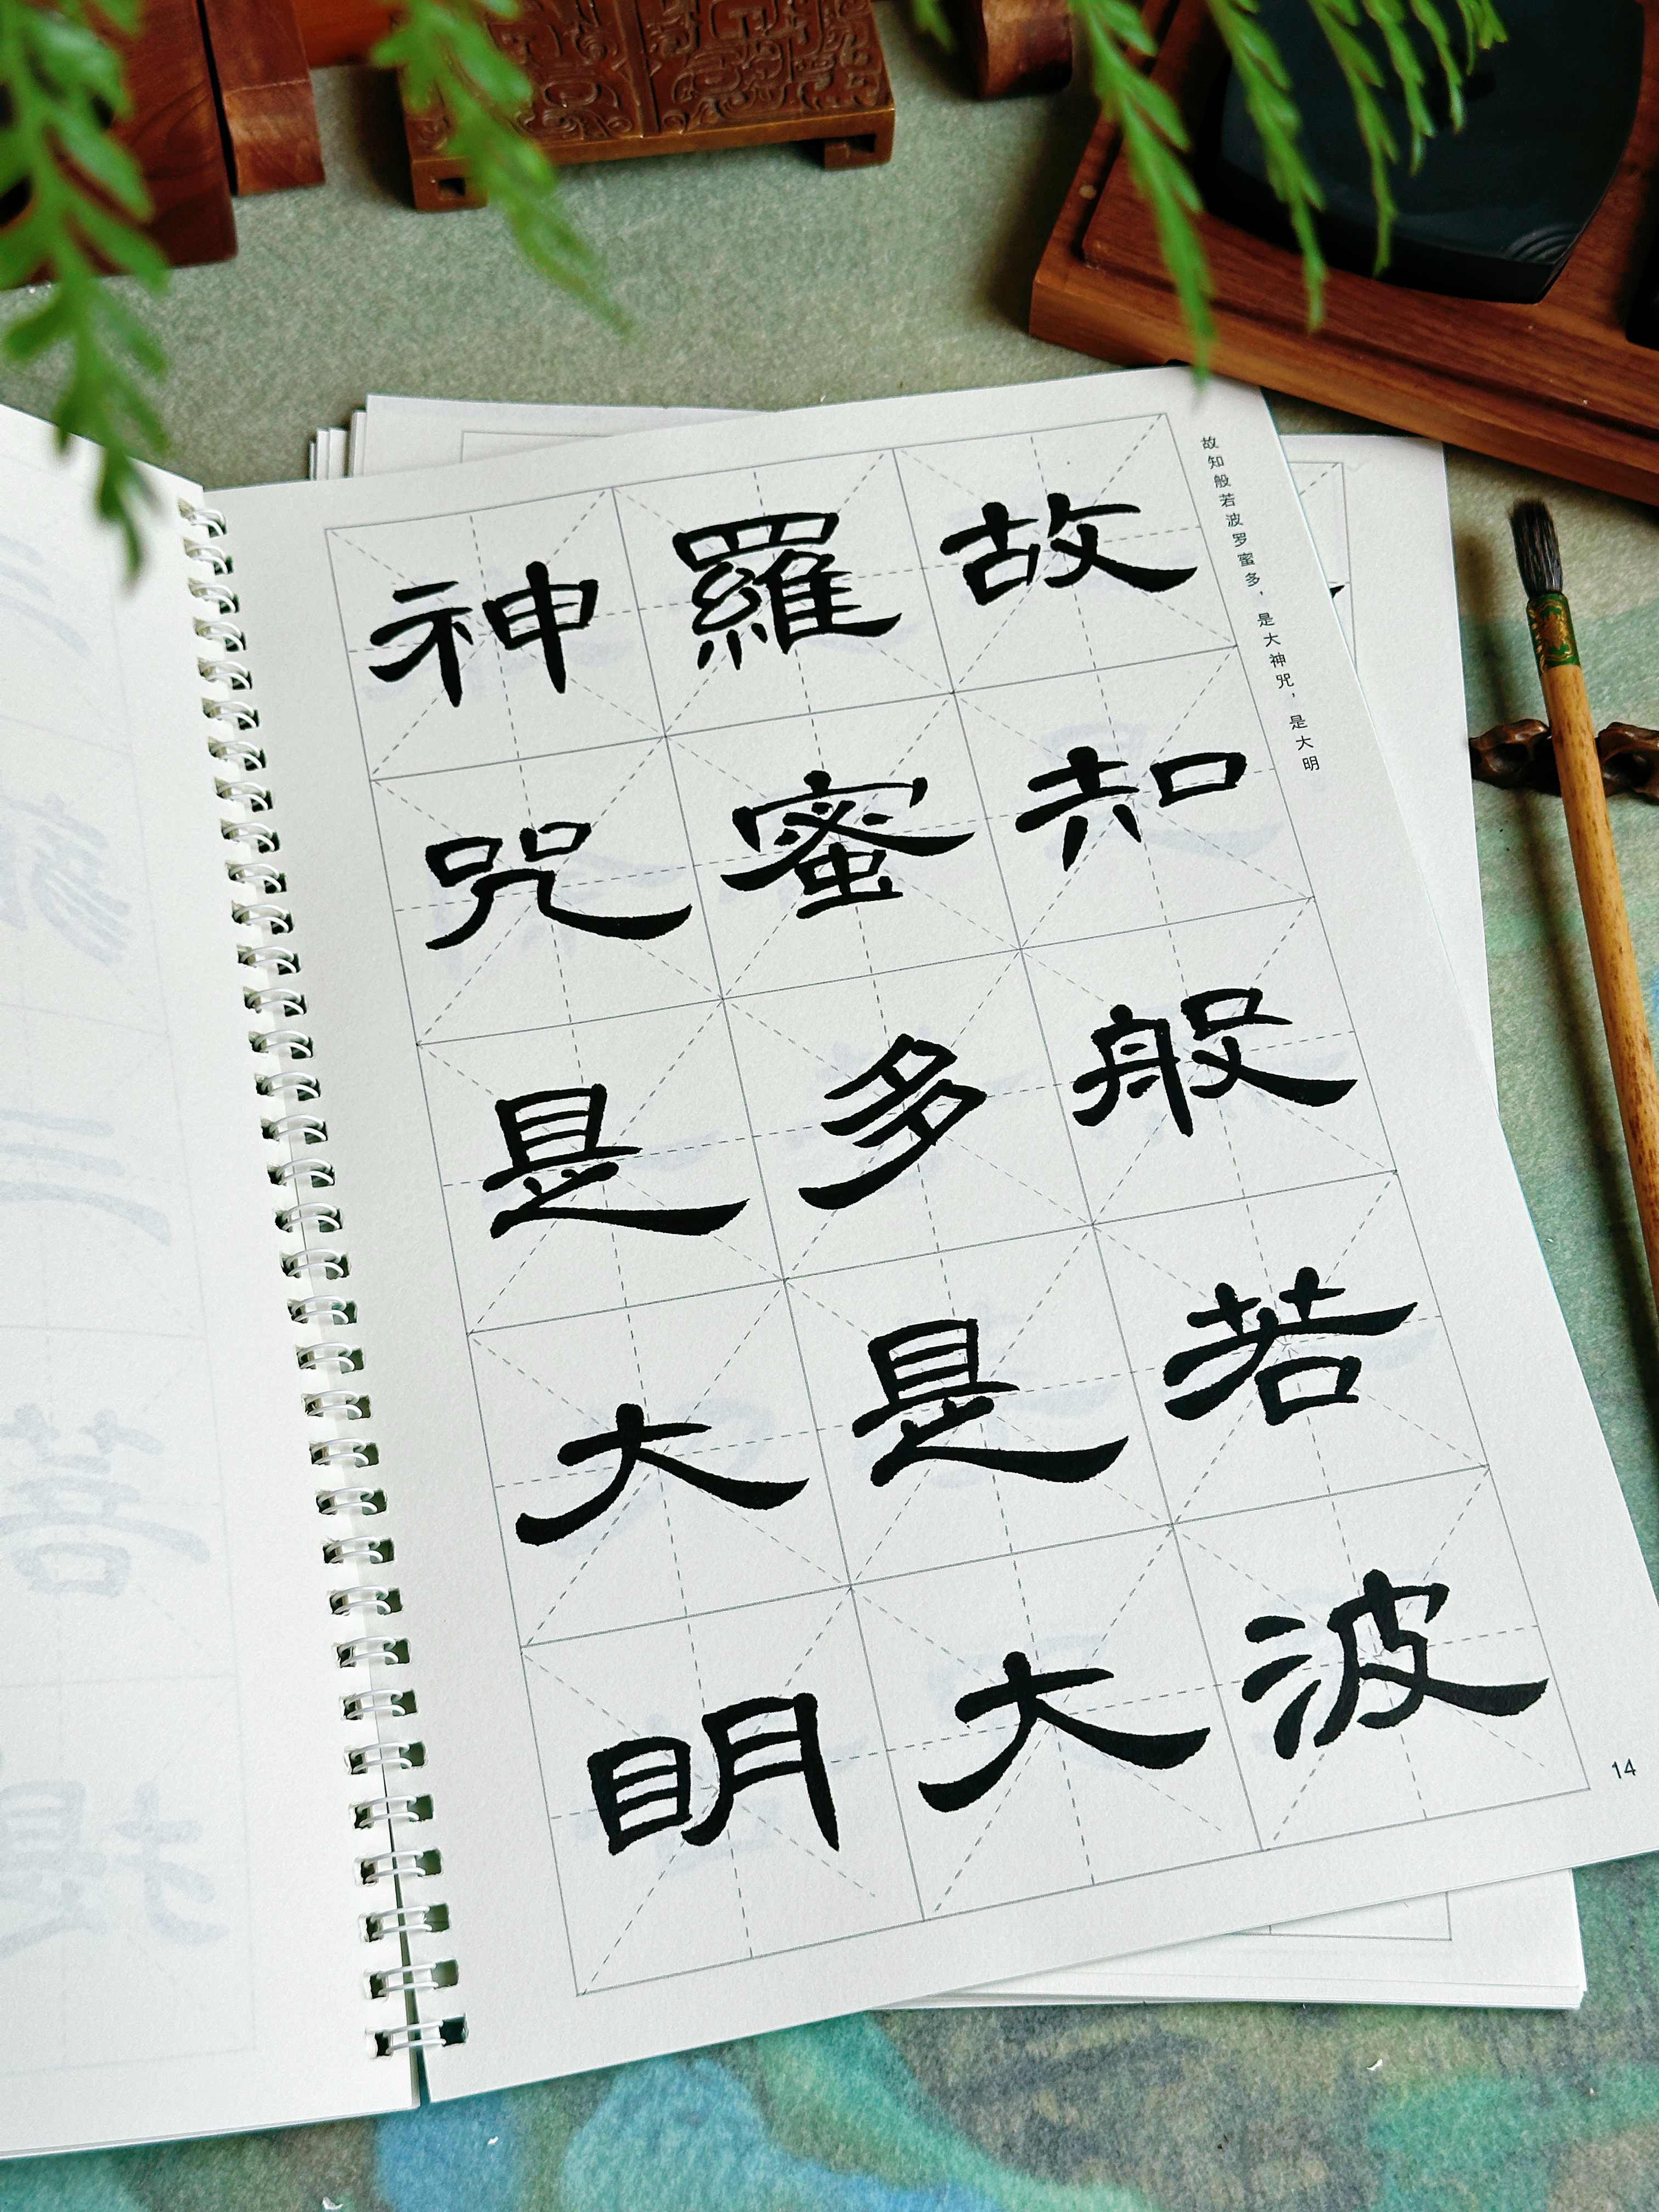 故知般若波罗蜜多，是大神咒，是大明
故知般若波
羅蜜多是大
神咒是大明
14